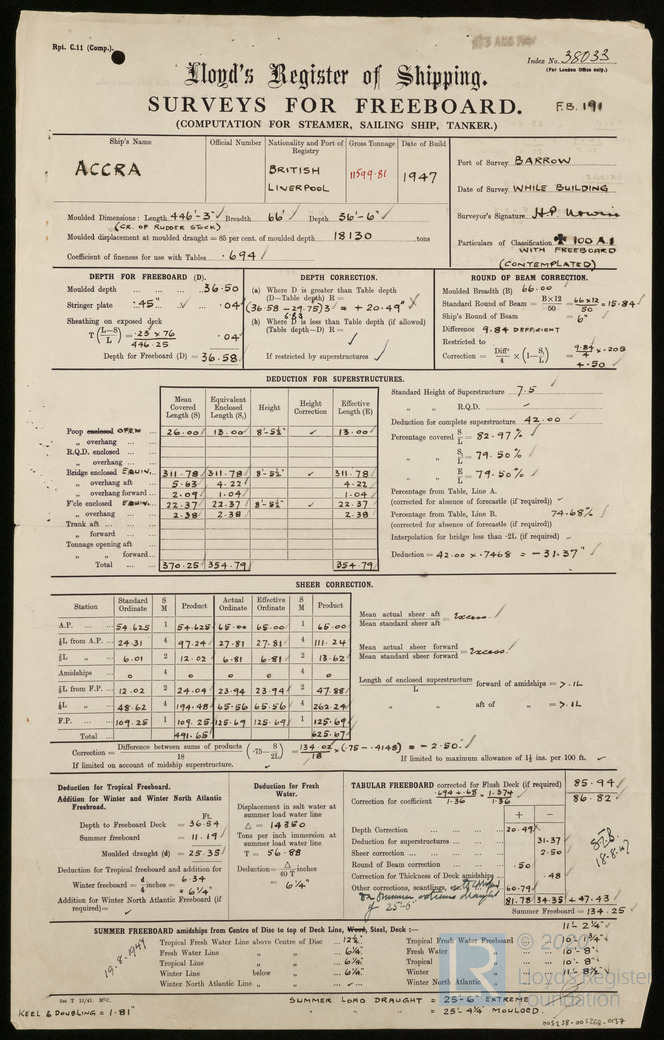 Rpt. C.11 (Comp.).
Index No. 38033
(For London Office only.)
Lloyd's Register of Shipping.
SURVEYS FOR FREEBOARD.
F.B. 191
(COMPUTATION FOR STEAMER, SAILING SHIP, TANKER.)
Ship's Name Official Number Nationality and Port of Registry Gross Tonnage Date of Build
ACCRA BRITISH LIVERPOOL 11599.81 1947
Port of Survey BARROW
Date of Survey WHILE BUILDING
Surveyor's Signature
Particulars of Classification ✠ 100 A.1
WITH FREEBOARD
(CONTEMPLATED)
Moulded Dimensions: Length 446'-3" Breadth 66' Depth 36'-6"
(CR. OF RUDDER STOCK)
Moulded displacement at moulded draught = 85 per cent. of moulded depth 18130 tons
Coefficient of fineness for use with Tables .694
DEPTH FOR FREEBOARD (D).
Moulded depth ... 36.50
Stringer plate .45" ... .04
Sheathing on exposed deck
T (L-S/L) = .23 x 76 / 446.25 .04
Depth for Freeboard (D) = 36.58
DEPTH CORRECTION.
(a) Where D is greater than Table depth
(D-Table depth) R =
(36.58 - 29.75)3 = + 20.49"
6.83
(b) Where D is less than Table depth (if allowed)
(Table depth-D) R =
If restricted by superstructures
ROUND OF BEAM CORRECTION.
Moulded Breadth (B) 66.00
Standard Round of Beam = B×12/50 = 66×12/50 = 15.84
Ship's Round of Beam = 6"
Difference 9.84 DEFFICIENT
Restricted to
Correction = Diff/4 × (1 - S₁/L) = 9.84/4 × .205
+ .50
DEDUCTION FOR SUPERSTRUCTURES.
Mean Covered Length (S) Equivalent Enclosed Length (S₁) Height Height Correction Effective Length (E)
Poop enclosed OPEN ... 26.00 13.00 8'-5½" ✓ 13.00
„ overhang
R.Q.D. enclosed
„ overhang
Bridge enclosed EQUIV. 311.78 311.78 8'-5½" ✓ 311.78
„ overhang aft 5.63 4.22 4.22
„ overhang forward 2.09 1.04 1.04
F'cle enclosed EQUIV. 22.37 22.37 8'-5½" ✓ 22.37
„ overhang 2.38 2.38 2.38
Trunk aft
„ forward
Tonnage opening aft
„ „ forward
Total 370.25 354.79 354.79
Standard Height of Superstructure 7.5
„ „ R.Q.D.
Deduction for complete superstructure 42.00
Percentage covered S/L = 82.97%
„ „ S₁/L = 79.50%
„ „ E/L = 79.50%
Percentage from Table, Line A.
(corrected for absence of forecastle (if required))
Percentage from Table, Line B. 74.68%
(corrected for absence of forecastle (if required))
Interpolation for bridge less than .2L (if required)
Deduction = 42.00 x .7468 = - 31.37"
SHEER CORRECTION.
Station Standard Ordinate S M Product Actual Ordinate Effective Ordinate S M Product
A.P. 54.625 1 54.625 65.00 65.00 1 65.00
⅙L from A.P. 24.31 4 97.24 27.81 27.81 4 111.24
⅓L „ 6.01 2 12.02 6.81 6.81 2 13.62
Amidships 0 4 0 0 0 4 0
⅓L from F.P. 12.02 2 24.04 23.94 23.94 2 47.88
⅙L „ 48.62 4 194.48 65.56 65.56 4 262.24
F.P. 109.25 1 109.25 125.69 125.69 1 125.69
Total 491.65 625.67
Mean actual sheer aft / Mean standard sheer aft = Excess.
Mean actual sheer forward / Mean standard sheer forward = Excess
Length of enclosed superstructure / L forward of amidships = >.1L
„ „ aft of „ = >.1L
Correction = Difference between sums of products / 18 (.75 - S/2L) = 134.02/18 x (.75 - .4148) = - 2.50
If limited on account of midship superstructure. If limited to maximum allowance of 1½ ins. per 100 ft.
Deduction for Tropical Freeboard.
Addition for Winter and Winter North Atlantic Freeboard.
Ft.
Depth to Freeboard Deck = 36.54
Summer freeboard = 11.19
Moulded draught (d) = 25.35
Deduction for Tropical freeboard and addition for
Winter freeboard = d/4 inches = 6.34
= 6¼"
Addition for Winter North Atlantic Freeboard (if required) =
Deduction for Fresh Water.
Displacement in salt water at summer load water line
Δ = 14350
Tons per inch immersion at summer load water line
T = 56.88
Deduction = Δ/40 T inches
= 6¼"
TABULAR FREEBOARD corrected for Flush Deck (if required) 85.94
Correction for coefficient .694 + .68 / 1.36 = 1.374 / 1.36 86.82
+ -
Depth Correction 20.49
Deduction for superstructures 31.37
Sheer correction 2.50
Round of Beam correction .50
Correction for Thickness of Deck amidships .48
Other corrections, scantlings, etc. 60.79
81.78 34.35 +47.43
Summer Freeboard = 134.25
18.8.47
19.8.1947
SUMMER FREEBOARD amidships from Centre of Disc to top of Deck Line, Wood, Steel, Deck :— 11'- 2¼"
Tropical Fresh Water Line above Centre of Disc ... 12½" Tropical Fresh Water Freeboard
Fresh Water Line „ „ 6¼" Fresh Water „ 10'- 8"
Tropical Line „ „ 6¼" Tropical „ 10'- 8"
Winter Line below „ 6¼" Winter „ 11'- 8½"
Winter North Atlantic Line „ „ Winter North Atlantic „
SUMMER LOAD DRAUGHT = 25'-6" EXTREME
KEEL & DOUBLING = 1.81" „ „ „ = 25'- 4¼" MOULDED.
© 2020
Lloyd's Register
Foundation
005258-005268-0137